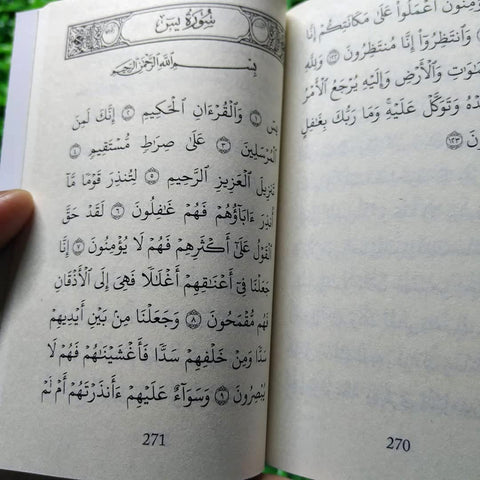 ؤْمِنُونَ ٱعْمَلُوا۟ عَلَىٰ مَكَانَتِكُمْ إِنَّا
وَٱنتَظِرُوٓا۟ إِنَّا مُنتَظِرُونَ ١٢٢ وَلِلَّهِ
مَٰوَٰتِ وَٱلْأَرْضِ وَإِلَيْهِ يُرْجَعُ ٱلْأَمْرُ
دْهُ وَتَوَكَّلْ عَلَيْهِ وَمَا رَبُّكَ بِغَٰفِلٍ
ونَ ١٢٣
270
سُورَةُ يسٓ
بِسْمِ ٱللَّهِ ٱلرَّحْمَٰنِ ٱلرَّحِيمِ
يسٓ ١ وَٱلْقُرْءَانِ ٱلْحَكِيمِ ٢ إِنَّكَ لَمِنَ
ٱلْمُرْسَلِينَ ٣ عَلَىٰ صِرَٰطٍ مُّسْتَقِيمٍ ٤
تَنزِيلَ ٱلْعَزِيزِ ٱلرَّحِيمِ ٥ لِتُنذِرَ قَوْمًا مَّآ
أُنذِرَ ءَابَآؤُهُمْ فَهُمْ غَٰفِلُونَ ٦ لَقَدْ حَقَّ
ٱلْقَوْلُ عَلَىٰٓ أَكْثَرِهِمْ فَهُمْ لَا يُؤْمِنُونَ ٧ إِنَّا
جَعَلْنَا فِىٓ أَعْنَٰقِهِمْ أَغْلَٰلًا فَهِىَ إِلَى ٱلْأَذْقَانِ
فَهُم مُّقْمَحُونَ ٨ وَجَعَلْنَا مِنۢ بَيْنِ أَيْدِيهِمْ
سَدًّا وَمِنْ خَلْفِهِمْ سَدًّا فَأَغْشَيْنَٰهُمْ فَهُمْ لَا
يُبْصِرُونَ ٩ وَسَوَآءٌ عَلَيْهِمْ ءَأَنذَرْتَهُمْ أَمْ لَمْ
271